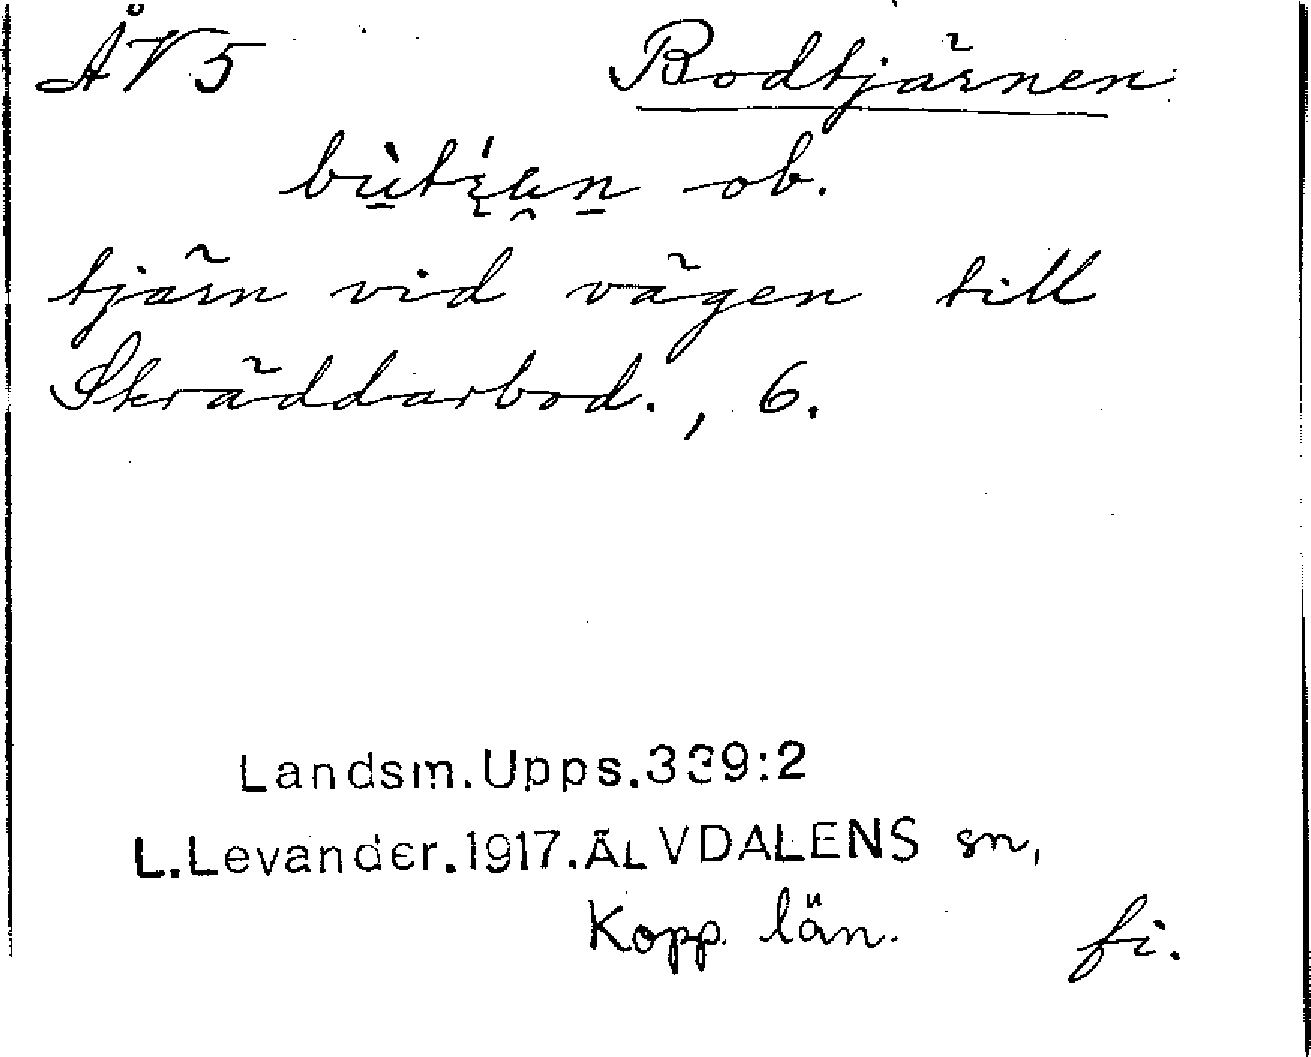 ÅV5 Bodtjärnen
ob.
tjärn vid vägen till
Skräddarbod., 6.
Landsm.Upps.339:2
L.Levander.1917.ÄLVDALENS sn,
Kopp. län. fi.